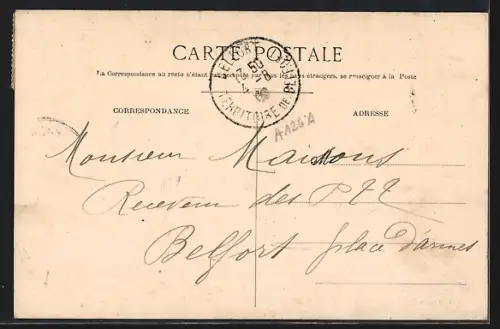 CARTE POSTALE
La Correspondance au recto n'étant pas acceptée par tous les pays étrangers, se renseigner à la Poste
CORRESPONDANCE
ADRESSE
TERRITOIRE DE BELFORT
A126A
Monsieur Maisons
Receveur des PTT
Belfort place d'armes